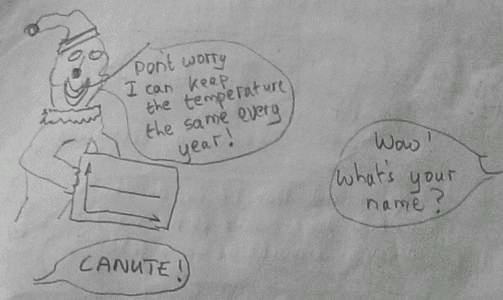 Don't worry
I can keep
the temperature
the same every
year!
Wow!
What's your
name?
CANUTE!